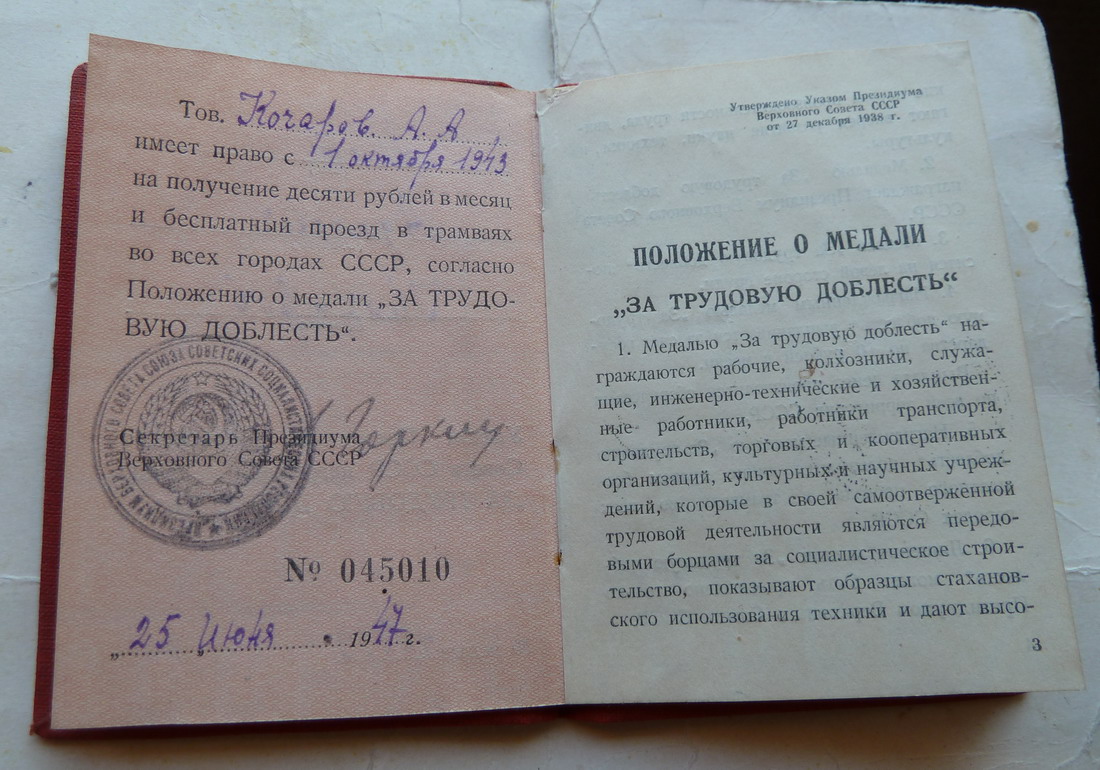 Тов. Кочаров А. А
имеет право с 1 октября 1943
на получение десяти рублей в месяц
и бесплатный проезд в трамваях
во всех городах СССР, согласно
Положению о медали „ЗА ТРУДО-
ВУЮ ДОБЛЕСТЬ“.
Секретарь Президиума
Верховного Совета СССР
Горкин
№ 045010
„25 июня 1947 г.
Утверждено Указом Президиума
Верховного Совета СССР
от 27 декабря 1938 г.
ПОЛОЖЕНИЕ О МЕДАЛИ
„ЗА ТРУДОВУЮ ДОБЛЕСТЬ“
1. Медалью „За трудовую доблесть“ на-
граждаются рабочие, колхозники, служа-
щие, инженерно-технические и хозяйствен-
ные работники, работники транспорта,
строительств, торговых и кооперативных
организаций, культурных и научных учреж-
дений, которые в своей самоотверженной
трудовой деятельности являются передо-
выми борцами за социалистическое строи-
тельство, показывают образцы стаханов-
ского использования техники и дают высо-
3